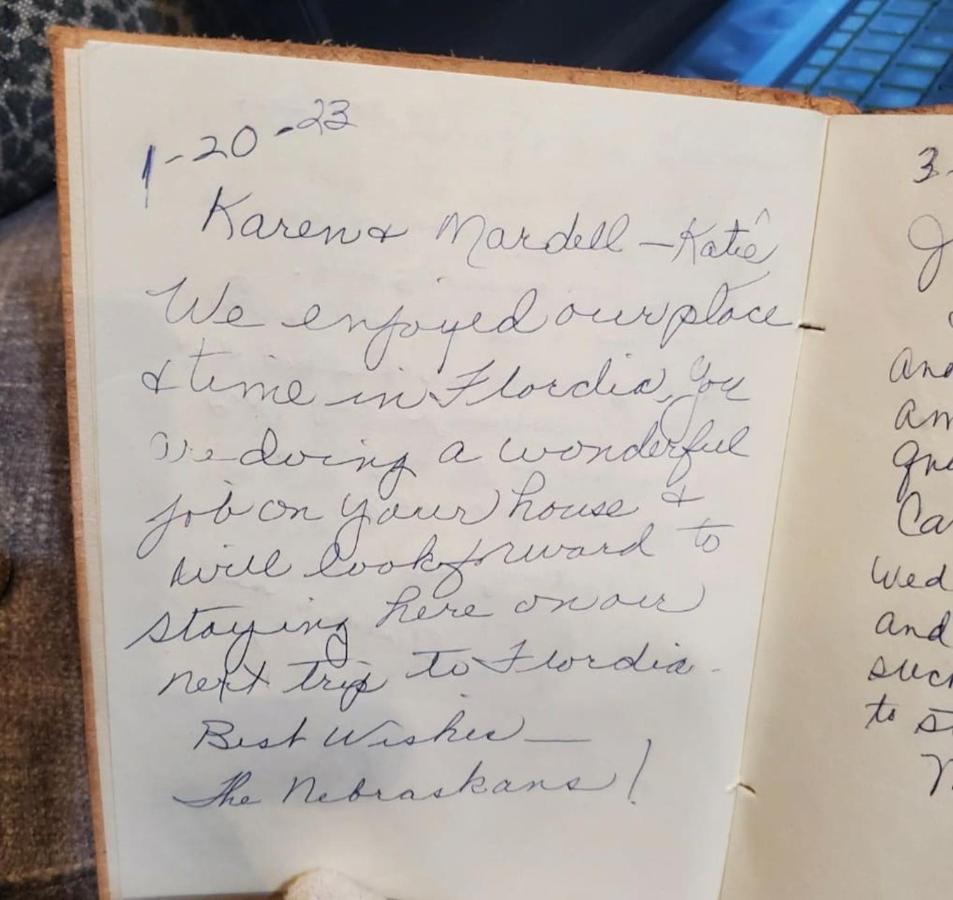 1-20-23
Karen & Mardell - Katie
We enjoyed our place
& time in Flordia, you
're doing a wonderful
job on your house &
will look forward to
staying here on our
next trip to Flordia.
Best Wishes —
The Nebraskans!
3-
J
and
am
Ca
Wed
and
such
to st